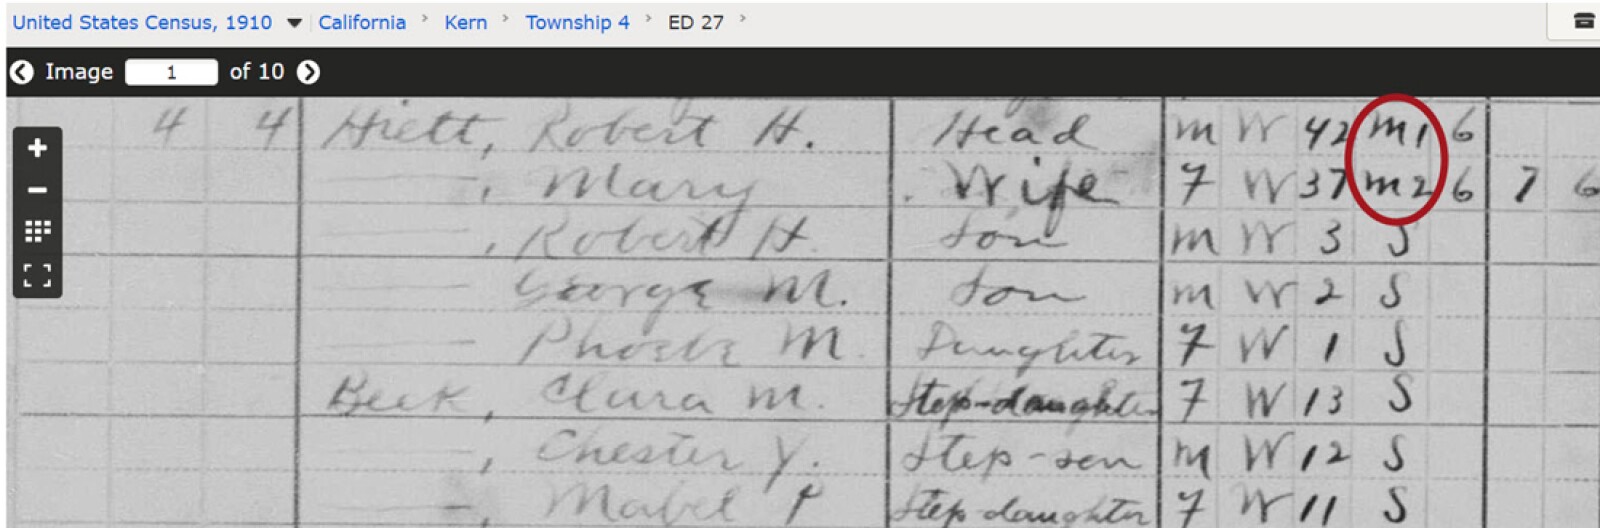 United States Census, 1910 California › Kern › Township 4 › ED 27 ›
Image 1 of 10
4 4 Hiett, Robert H. Head m W 42 m1 6
, Mary Wife F W 37 m2 6 7 6
, Robert H. Son m W 3 S
George M. Son m W 2 S
Phoebe M. Daughter F W 1 S
Beek, Clara M. Step-daughter F W 13 S
, Chester Y. Step-son m W 12 S
, Mabel P Step-daughter F W 11 S